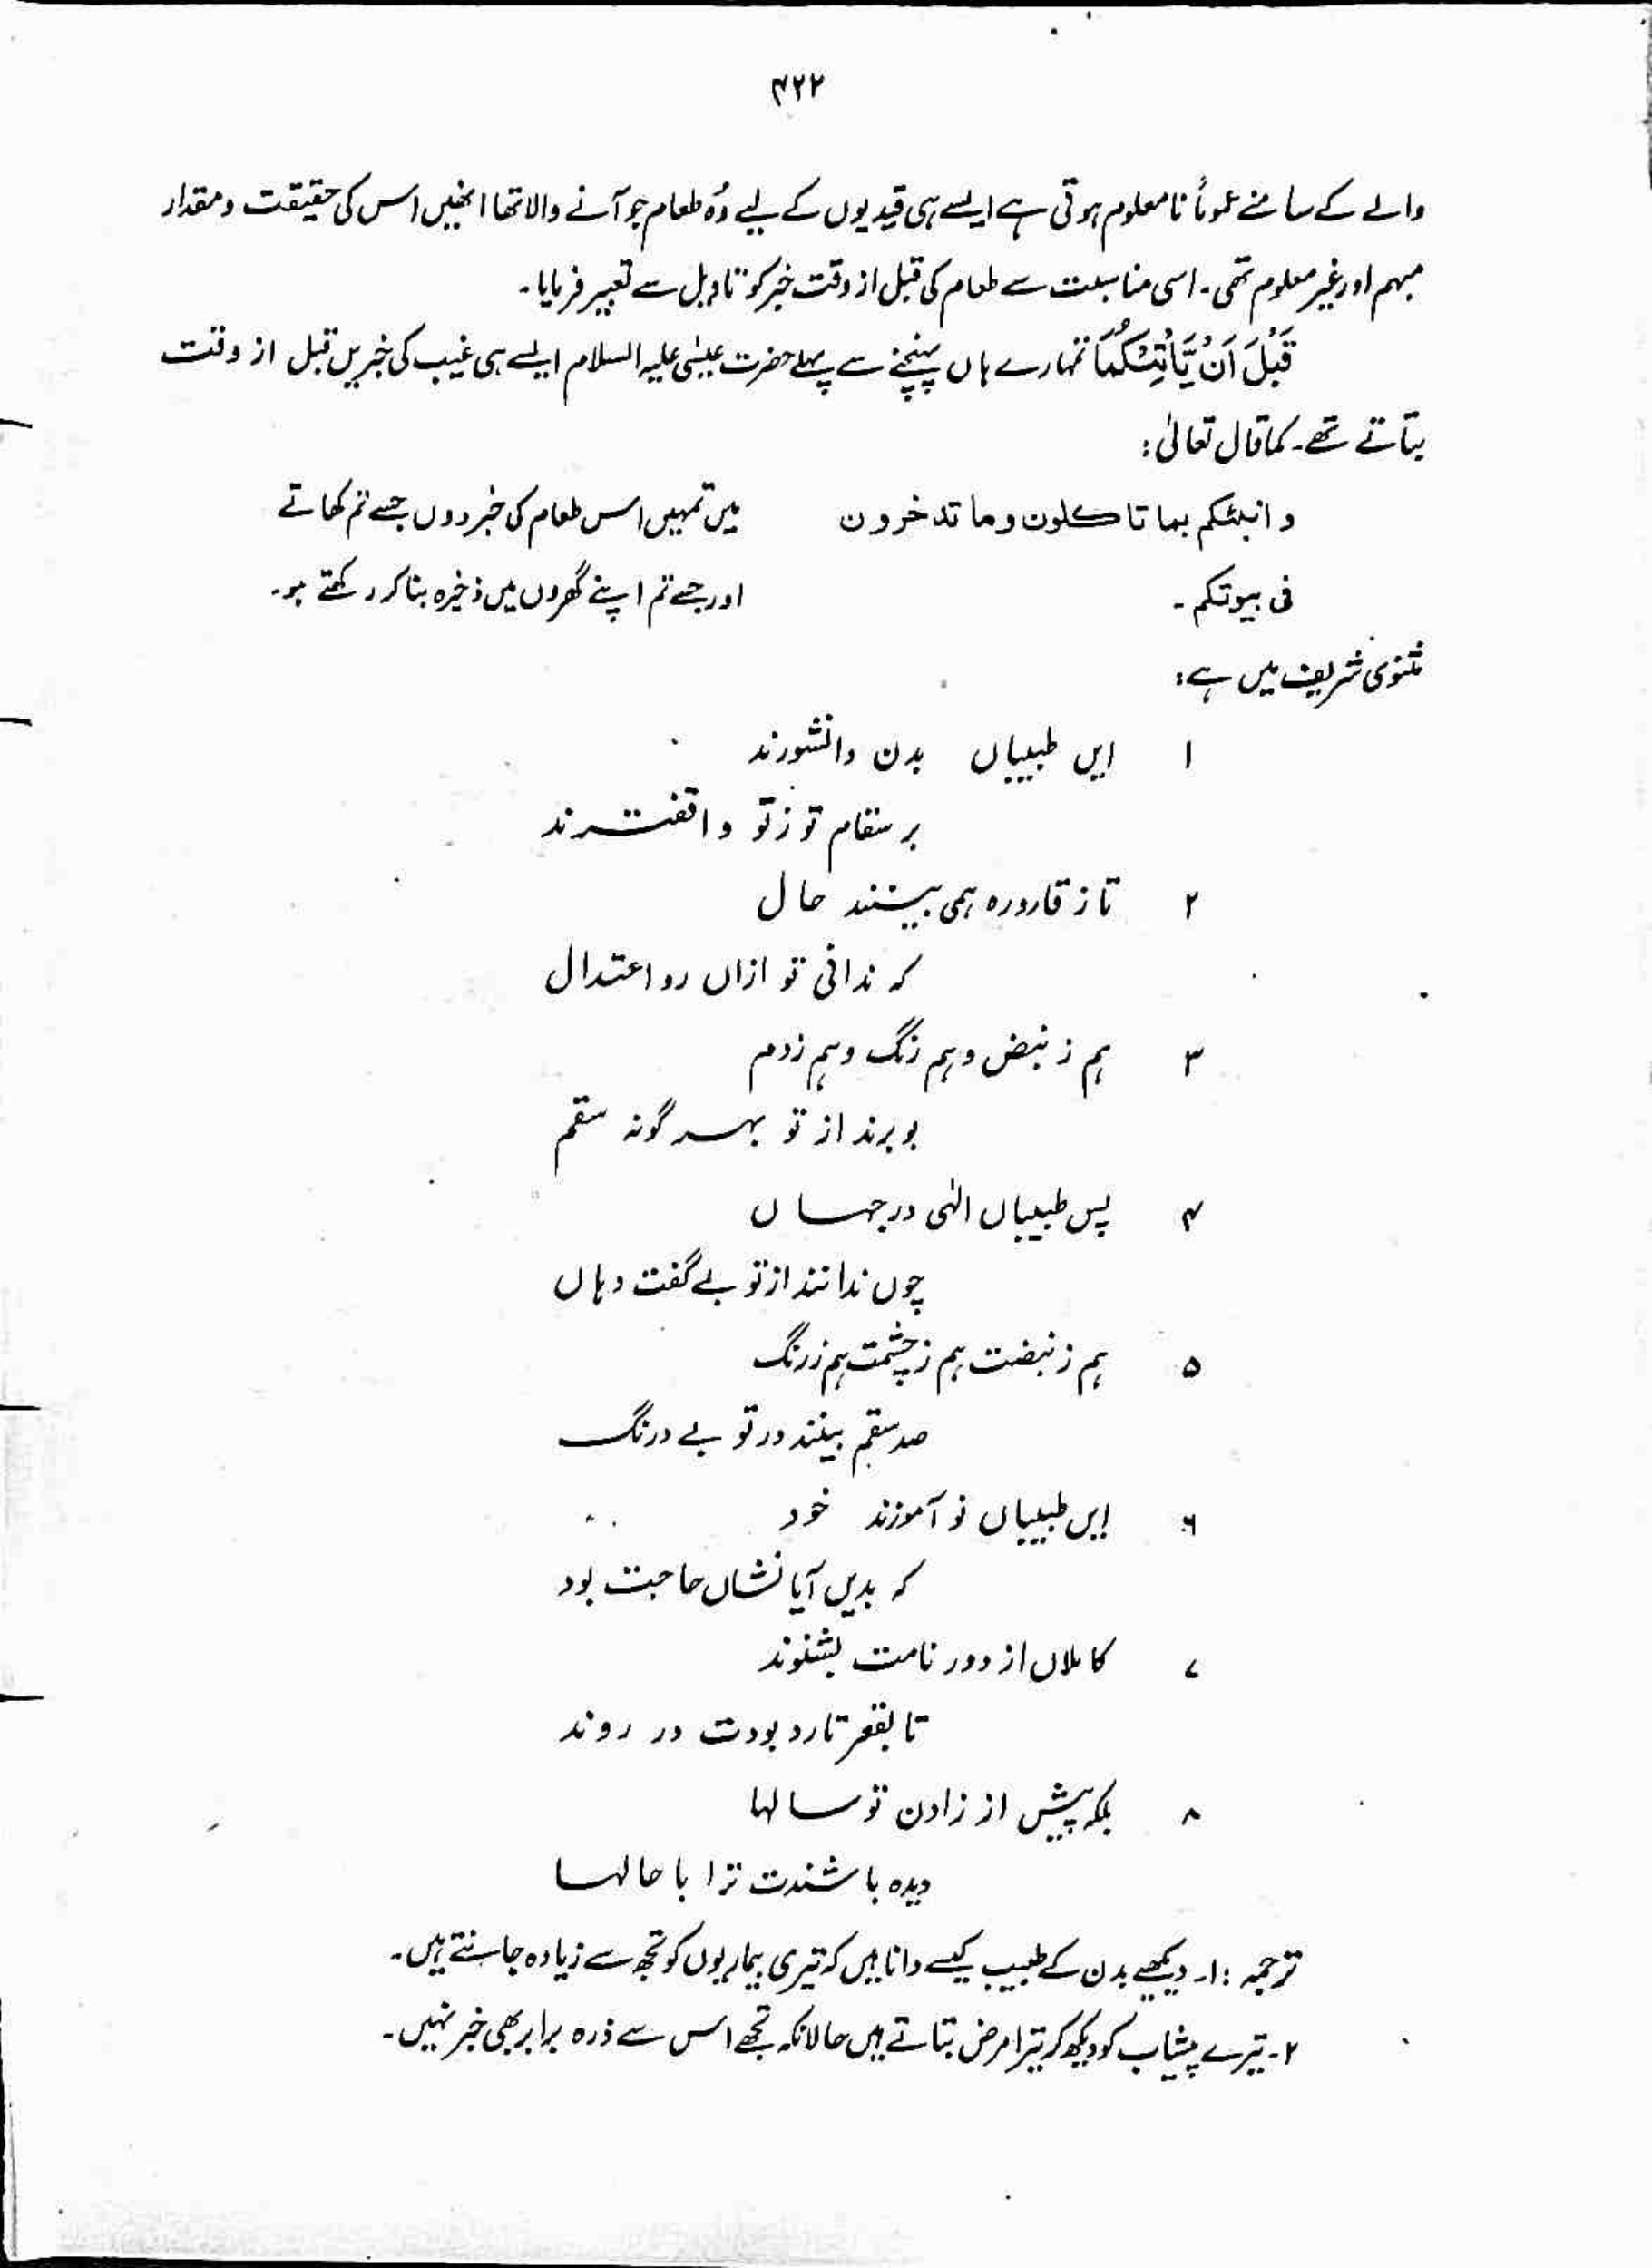 ۴۲۲
والے کے سامنے عموماً نامعلوم ہوتی ہے ایسے ہی قیدیوں کے لیے وُہ طعام جو آنے والا تھا انھیں اس کی حقیقت و مقدار
مبہم اور غیر معلوم تھی۔ اسی مناسبت سے طعام کی قبل از وقت خبر کو تاویل سے تعبیر فرمایا۔
قَبْلَ اَنْ یَّاْتِیَکُمَا تمہارے ہاں پہنچنے سے پہلے حضرت عیسٰی علیہ السلام ایسے ہی غیب کی خبریں قبل از وقت
بتاتے تھے۔ کما قال تعالیٰ:
و انبئکم بما تاکلون وما تدخرون
فی بیوتکم۔
میں تمہیں اس طعام کی خبر دوں جسے تم کھاتے
اور جسے تم اپنے گھروں میں ذخیرہ بنا کر رکھتے ہو۔
مثنوی شریف میں ہے:
۱ ایں طبیباں بدن دانشورند
بر سقام تو زتو واقفترند
۲ تا ز قارورہ ہمی بینند حال
کہ ندانی تو ازاں رو اعتدال
۳ ہم ز نبض وہم زنگ وہم زدم
بو برند از تو بہر گونہ سقم
۴ پس طبیباں الٰہی در جہاں
چوں ندانند از تو بے گفت دہاں
۵ ہم ز نبضت ہم ز چشمت ہم زرنگ
صد سقم بینند در تو بے درنگ
۶ ایں طبیباں نو آموزند خود
کہ بدیں آیا نشاں حاجت بود
۷ کاملاں از دور نامت بشنوند
تا بقعر تارد بودت در روند
۸ بلکہ پیش از زادن تو سالہا
دیدہ باشندت ترا با حالہا
ترجمہ: ۱۔ دیکھیے بدن کے طبیب کیسے دانا ہیں کہ تیری بیماریوں کو تجھ سے زیادہ جانتے ہیں۔
۲۔ تیرے پیشاب کو دیکھ کر تیرا مرض بتاتے ہیں حالانکہ تجھے اس سے ذرہ برابر بھی خبر نہیں۔